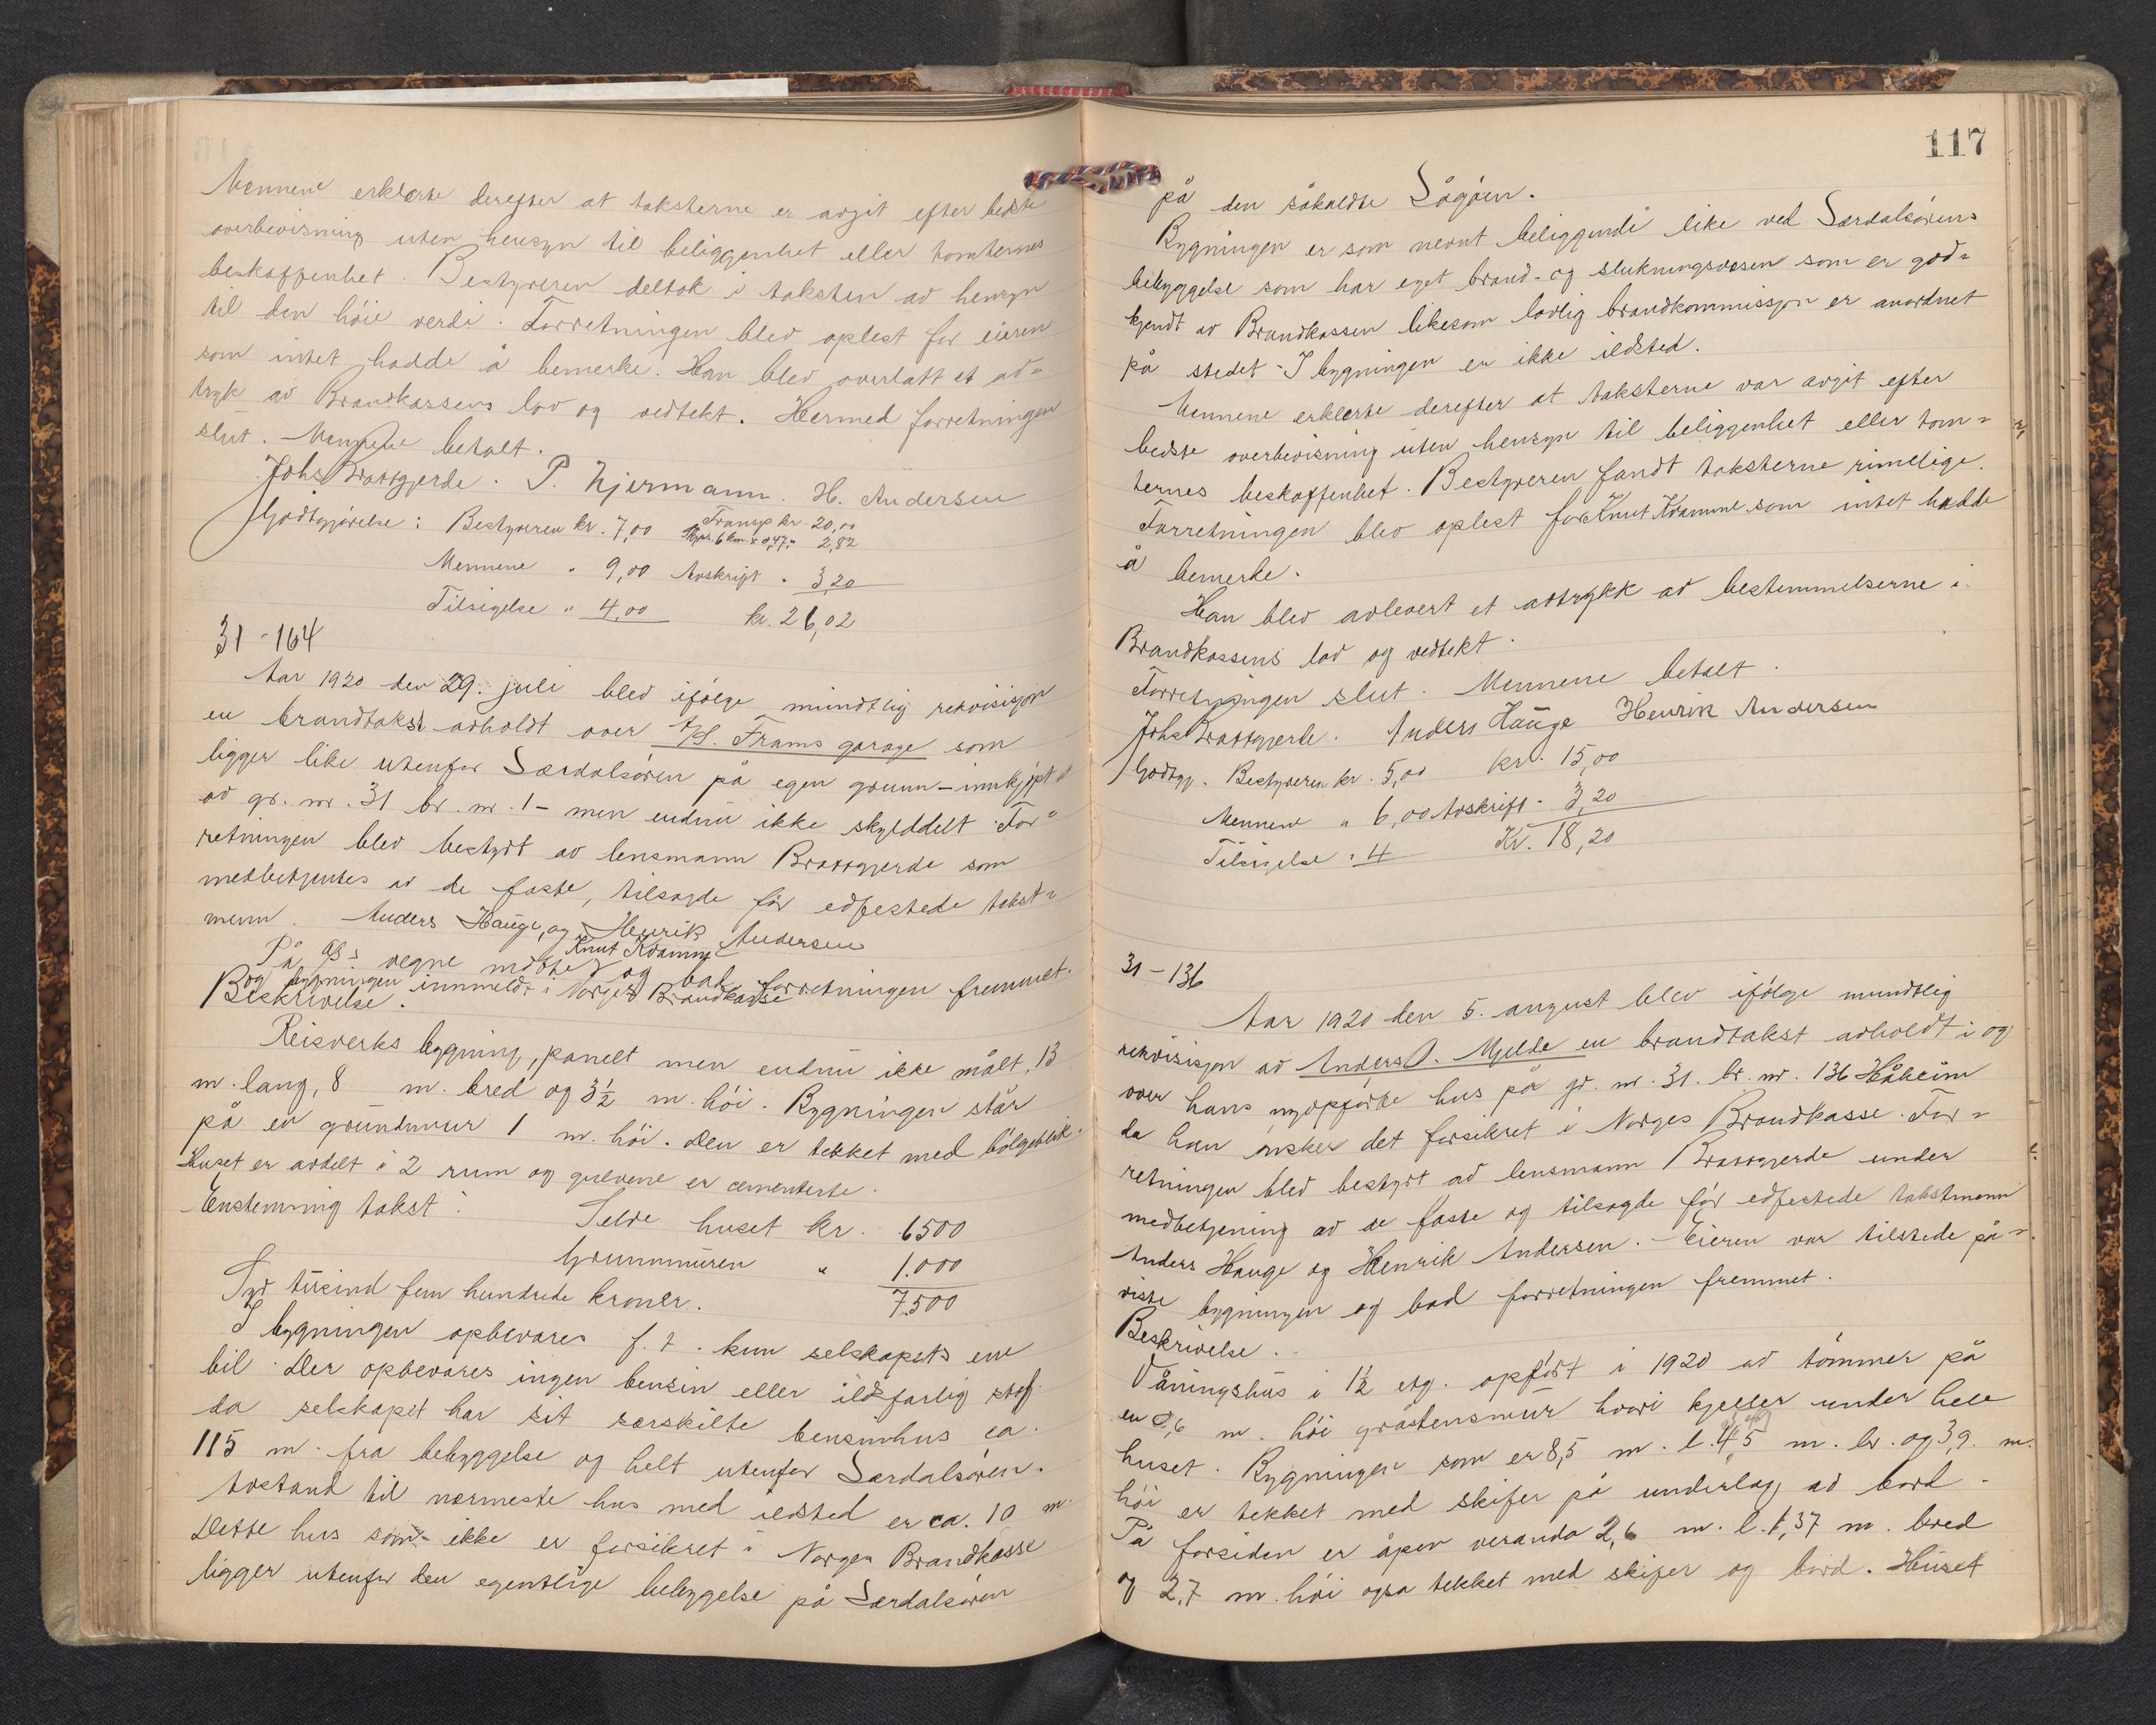 Mennene erklærte derefter at taksterne er avgit efter bedste
overbevisning uten hensyn til beliggenhet eller tomternes
beskaffenhet. Bestyreren deltok i taksten av hensyn
til den höie verdi. Forretningen blev oplest for eieren
som intet hadde å bemerke. Han blev overlatt et av=
tryk av Brandkassens lov og vedtekt. Hermed forretningen
slut. Mennene betalt.
Johs Brattgjerde. P. Njermann. H. Andersen
Godtgjörelse: Bestyreren kr. 7,00 Transp kr. 20,00
Skyss 6 km. x 0,47 " 2,82
Mennene " 9,00 Avskrift " 3,20
Tilsigelse " 4,00 kr. 26,02
31 - 164
Aar 1920 den 29. juli blev ifölge mundtlig rekvisisjon
en brandtakst avholdt over A/S. Frams garage som
ligger like utenfor Lærdalsören på egen grunn - innkjøpt
av gr. nr. 31 br. nr. 1 - men endnu ikke skylddelt. For=
retningen blev bestyrt av lensmann Brattgjerde som
medbetjentes av de faste, tilsagde før edfestede takst=
menn. Anders Hauge, og Henrik Andersen
På A/S s vegne møtte Knut Kvamme og bad forretningen fremmet.
og bygningen innmeldt i Norges Brandkasse
Beskrivelse.
Reisverks bygning, panelt men endnu ikke målt, 13
m. lang, 8 m. bred og 3½ m. höi. Bygningen står
på en grundmur 1 m. höi. Den er tekket med bölgeblik.
Huset er avdelt i 2 rum og gulvene er cementerte.
Enstemmig takst:
Selve huset kr. 6500
Grunnmuren " 1.000
Syv tusind fem hundrede kroner. 7.500
I bygningen opbevares f. t. kun selskapets ene
bil. Der opbevares ingen bensin eller ildsfarlig stof
da selskapet har sit særskilte bensinhus ca.
115 m. fra bebyggelse og helt utenfor Lærdalsören.
Avstand til nærmeste hus med ildsted er ca. 10 m.
Dette hus som ikke er forsikret i Norges Brandkasse
ligger utenfor den egentlige bebyggelse på Lærdalsören
117
på den såkaldte Lågöien.
Bygningen er som nevnt beliggende like ved Lærdalsörens
bebyggelse som har eget brand- og slukningsvæsen som er god=
kjendt av Brandkassen likesom lovlig brandkommissjon er anordnet
på stedet - I bygningen er ikke ildsted.
Mennene erklærte derefter at taksterne var avgit efter
bedste overbevisning uten hensyn til beliggenhet eller tom=
ternes beskaffenhet. Bestyreren fandt taksterne rimelige.
Forretningen blev oplest for Knut Kvamme som intet hadde
å bemerke.
Han blev avlevert et avtrykk av bestemmelserne i
Brandkassens lov og vedtekt.
Forretningen slut. Mennene betalt.
Johs Brattgjerde. Anders Hauge Henrik Andersen
Godtgj. Bestyreren kr. 5,00 kr. 15,00
Mennene " 6,00 Avskrift " 3,20
Tilsigelse " 4 Kr. 18,20
31 - 136
Aar 1920 den 5. august blev ifölge mundtlig
rekvisisjon av Anders O. Mjelde en brandtakst avholdt i og
over hans nyopförte hus på gr. nr. 31. br. nr. 136 Håheim
da han önsker det forsikret i Norges Brandkasse. For=
retningen blev bestyrt av lensmann Brattgjerde under
medbetjening av de faste og tilsagde før edfestede takstmenn
Anders Hauge og Henrik Andersen. - Eieren var tilstede på=
viste bygningen og bad forretningen fremmet.
Beskrivelse.
Våningshus i 1½ etg. opført i 1920 av tömmer på
en 0,6 m. höi gråstensmur hvori kjeller under hele
huset. Bygningen som er 8,5 m. l. 4,5 m. br. og 3,9. m.
höi er tekket med skifer på underlag av bord.
På forsiden er åpen veranda 2,6 m. l. 1,37 m. bred
og 2,7 m. höi ogsa tekket med skifer og bord. Huset